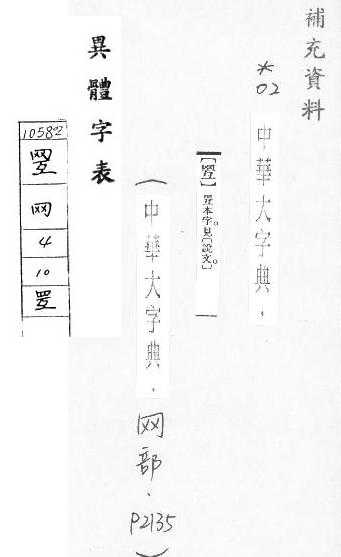 補充資料
*02 中華大字典．
本字。見〔說文〕。
（中華大字典．网部．P2135）
異體字表
10582
网
4
10